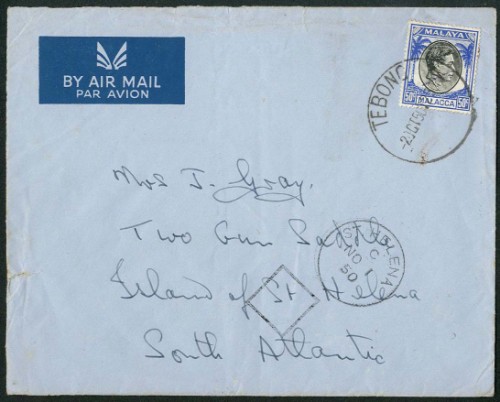 BY AIR MAIL
PAR AVION
MALAYA
50c 50c
MALACCA
TEBONG
-2 OCT 50
Mrs J. Gray.
Two Gun Saddle
Island of St Helena
South Atlantic
ST. HELENA
C
NO
50